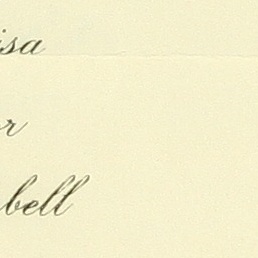 isa
or
bell